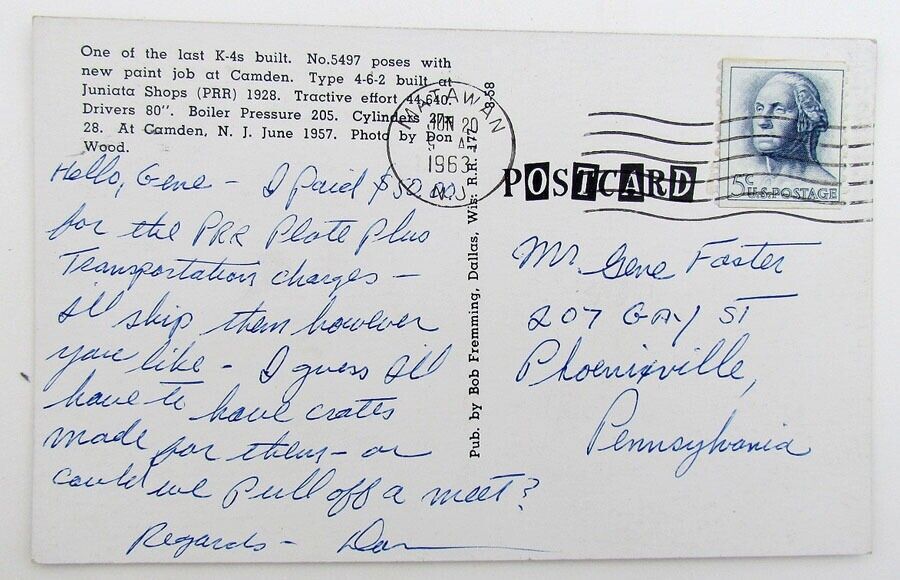 One of the last K-4s built. No.5497 poses with
new paint job at Camden. Type 4-6-2 built at
Juniata Shops (PRR) 1928. Tractive effort 44,640.
Drivers 80". Boiler Pressure 205. Cylinders 27x
28. At Camden, N. J. June 1957. Photo by Don
Wood.
Hello, Gene - I paid $50.00
for the PRR Plate Plus
Transportation charges -
I'll ship them however
you like - I guess I'll
have to have crates
made for them - or
could we pull off a meet?
Regards - Don
Pub. by Bob Fremming, Dallas, Wis. R.R. 177
8-58
MATAWAN
JUN 20
1963
N.J.
POSTCARD
5¢
U.S. POSTAGE
Mr Gene Foster
207 GAY ST
Phoenixville,
Pennsylvania